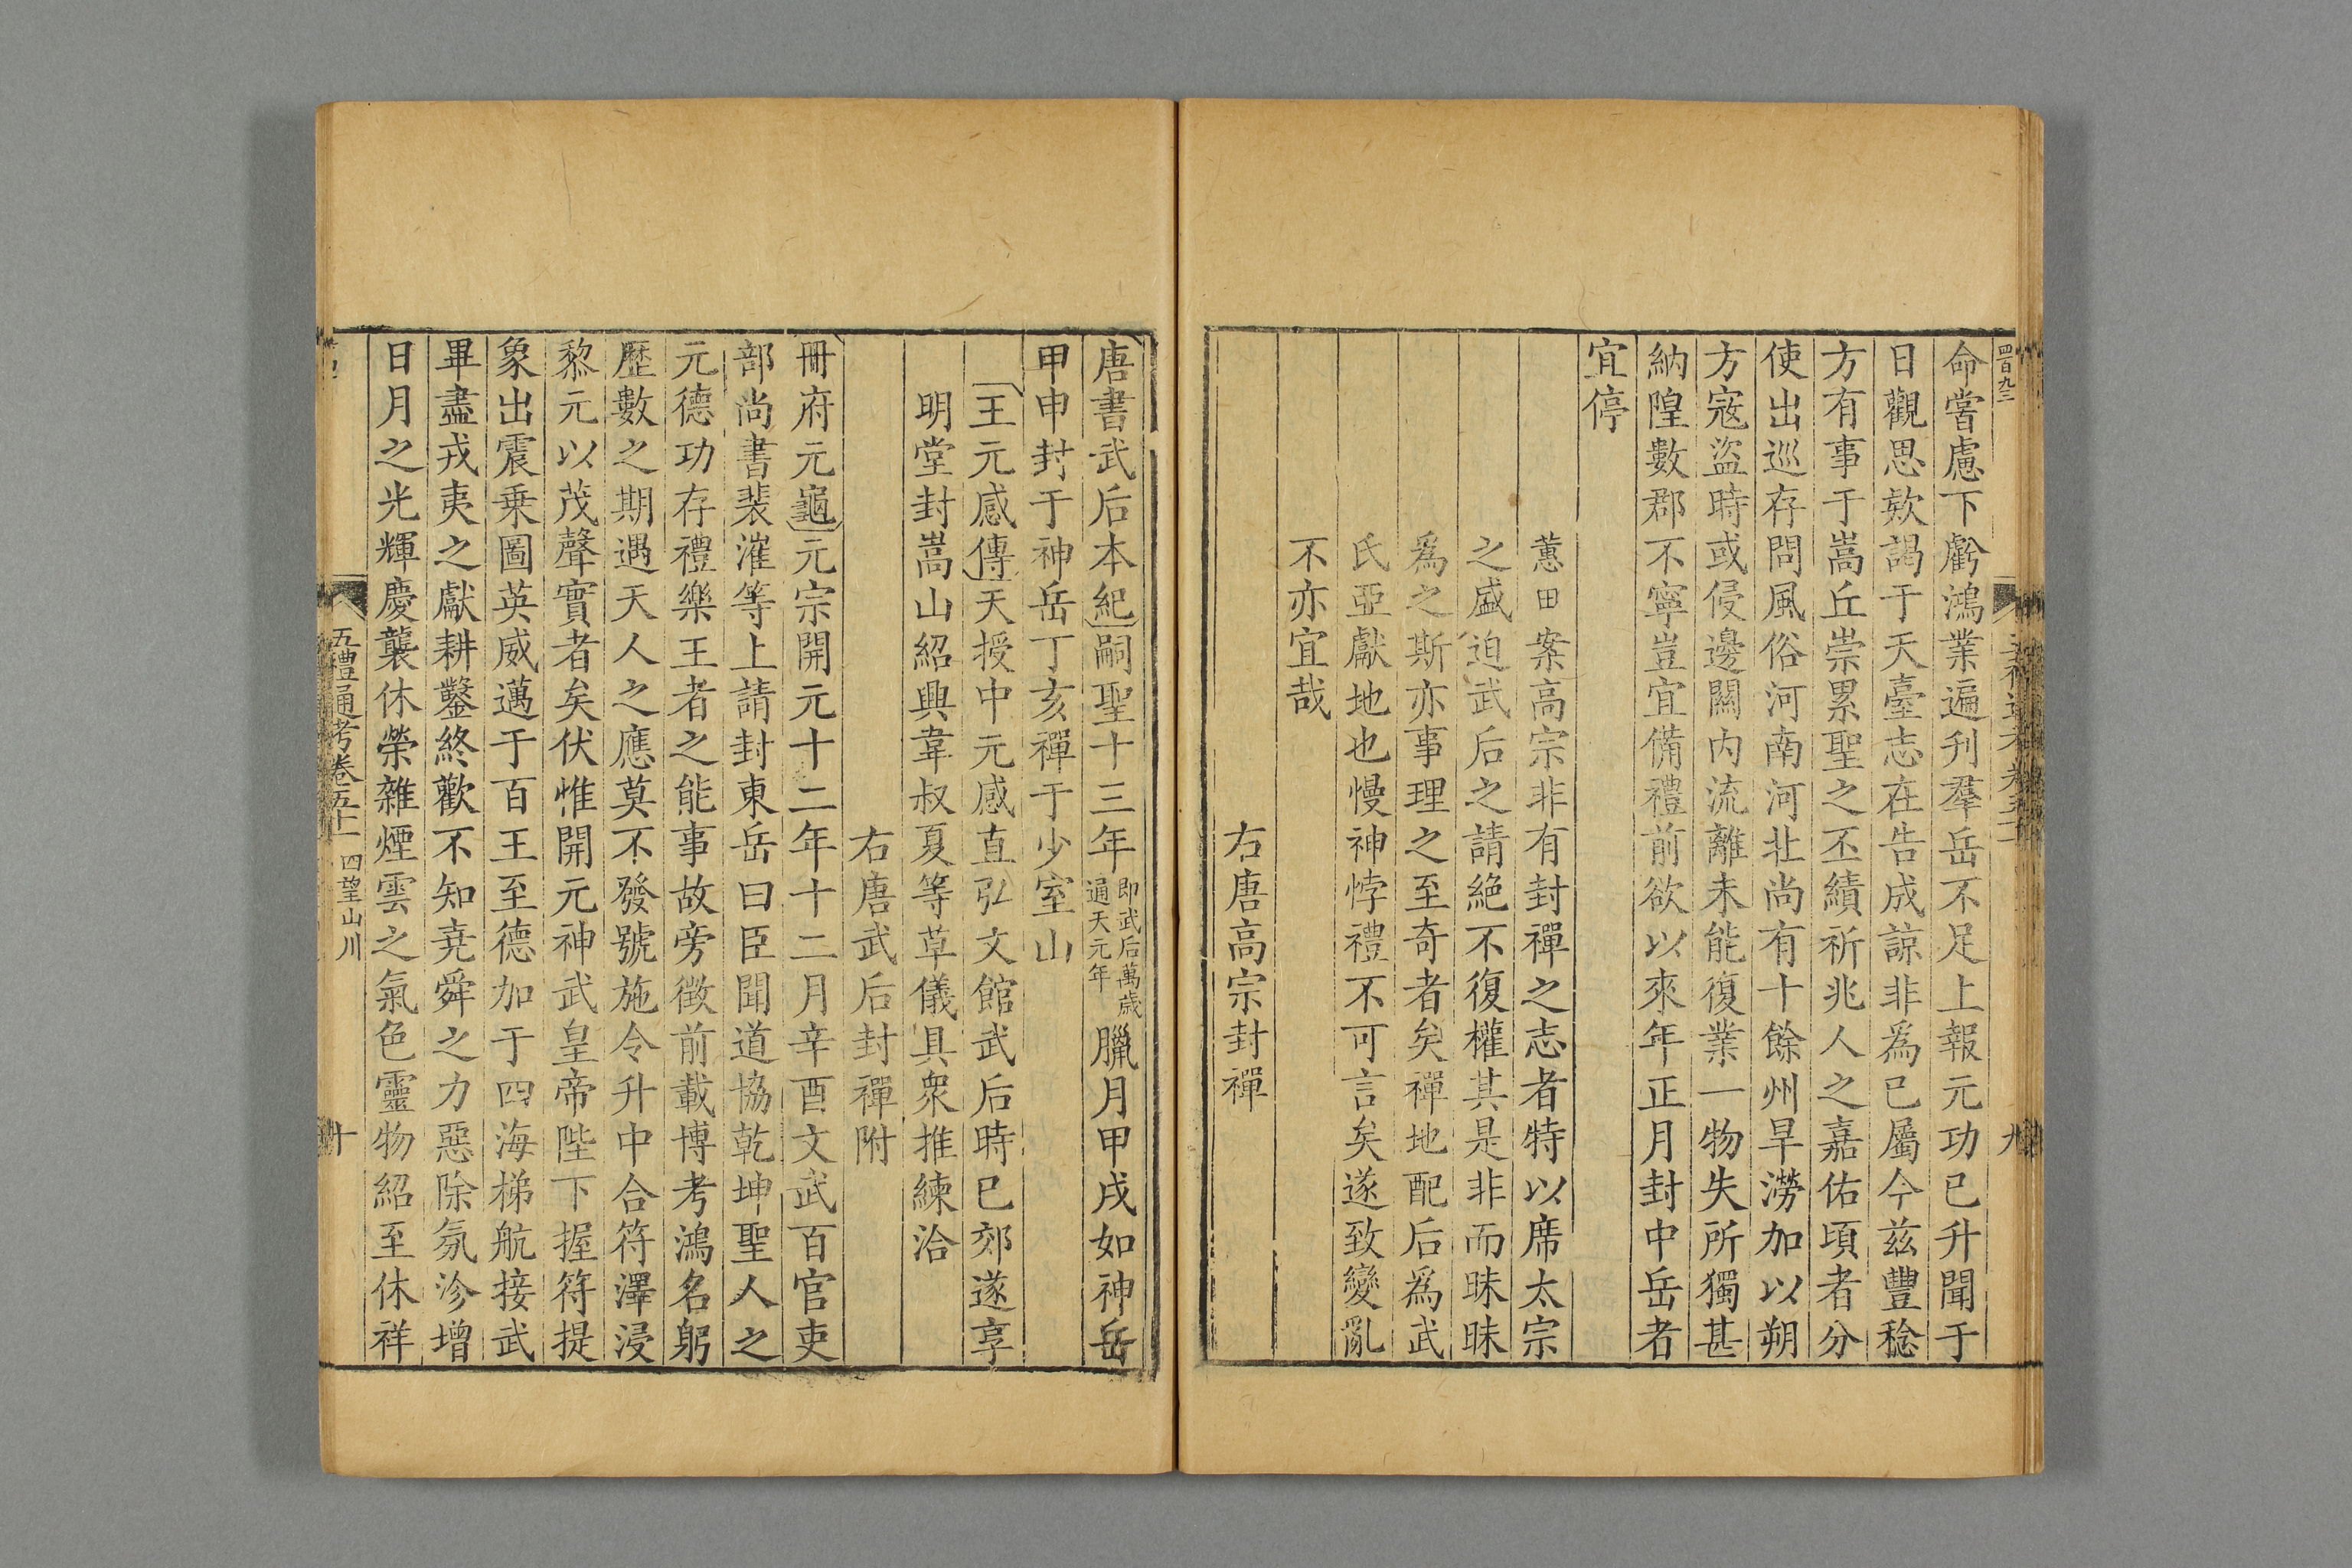 四百九三
九
命嘗慮下虧鴻業遍刋羣岳不足上報元功已升聞于
日觀思欵謁于天臺志在告成諒非爲已屬今兹豐稔
方有事于嵩丘崇累聖之丕績祈兆人之嘉佑頃者分
使出巡存問風俗河南河北尚有十餘州旱澇加以朔
方寇盜時或侵邊關内流離未能復業一物失所獨甚
納隍數郡不寧豈宜備禮前欲以來年正月封中岳者
宜停
蕙田案高宗非有封禪之志者特以席太宗
之盛迫武后之請絶不復權其是非而昧昧
爲之斯亦事理之至奇者矣禪地配后爲武
氏亞獻地也慢神悖禮不可言矣遂致變亂
不亦宜哉
右唐高宗封禪
唐書武后本紀嗣聖十三年即武后萬歲通天元年臘月甲戌如神岳
甲申封于神岳丁亥禪于少室山
王元感傳天授中元感直弘文館武后時已郊遂享
明堂封嵩山紹興韋叔夏等草儀具衆推練洽
右唐武后封禪附
冊府元龜元宗開元十二年十二月辛酉文武百官吏
部尚書裴漼等上請封東岳曰臣聞道協乾坤聖人之
元德功存禮樂王者之能事故旁徵前載博考鴻名躬
歷數之期遇天人之應莫不發號施令升中合符澤浸
黎元以茂聲實者矣伏惟開元神武皇帝陛下握符提
象出震乗圖英威邁于百王至德加于四海梯航接武
畢盡戎夷之獻耕鑿終歡不知堯舜之力惡除氛沴增
日月之光輝慶襲休榮雜煙雲之氣色靈物紹至休祥
五禮通考卷五十一 四望山川
十